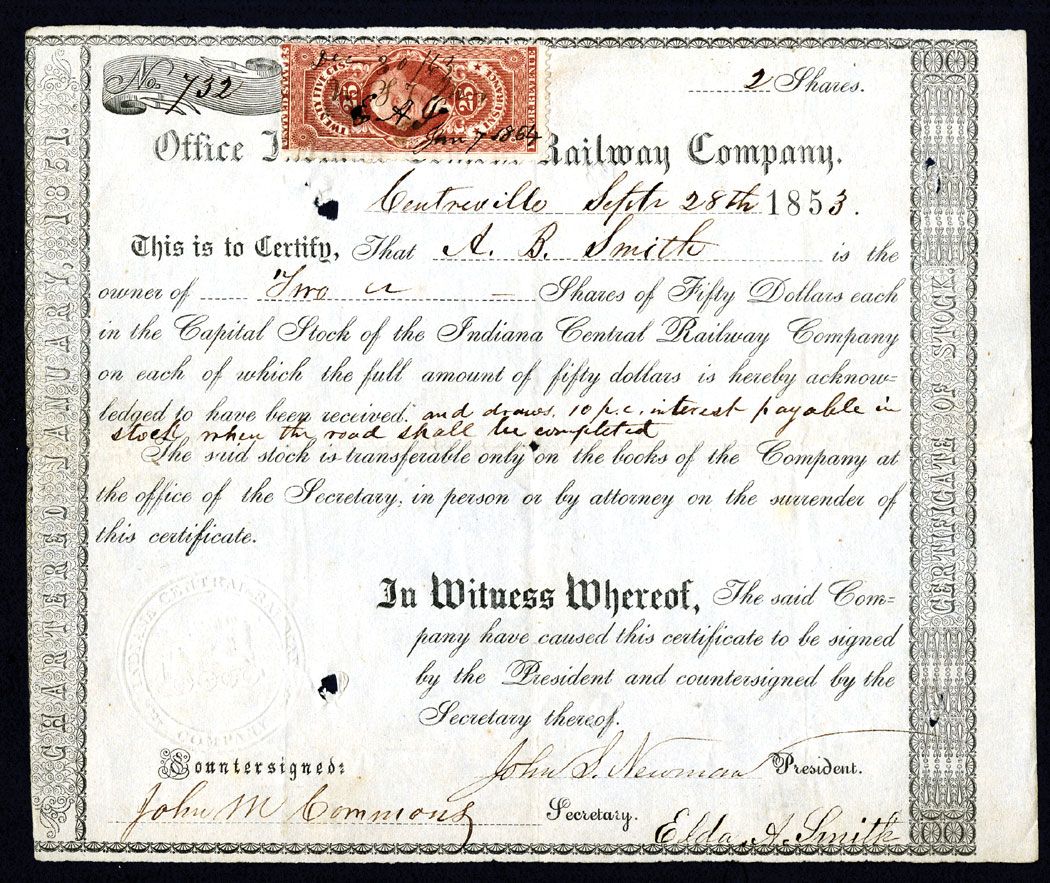 No. 732
2 Shares.
UNITED STATES
TWENTY FIVE
25
25
INTER. REVENUE
Dec 30/63
Jan 7 1864
Office Railway Company.
Centreville Septr 28th 1853.
This is to Certify, That A. B. Smith is the
owner of Two Shares of Fifty Dollars each
in the Capital Stock of the Indiana Central Railway Company
on each of which the full amount of fifty dollars is hereby acknow=
ledged to have been received. and draws 10 p.c. interest payable in
stock when the road shall be completed
The said stock is transferable only on the books of the Company at
the office of the Secretary, in person or by attorney on the surrender of
this certificate.
In Witness Whereof, The said Com=
pany have caused this certificate to be signed
by the President and countersigned by the
Secretary thereof.
INDIANA CENTRAL RAILWAY
COMPANY
Countersigned:
John S. Newman President.
John M Commons Secretary.
Elda A. Smith
CHARTERED JANUARY, 1851.
CERTIFICATE OF STOCK.